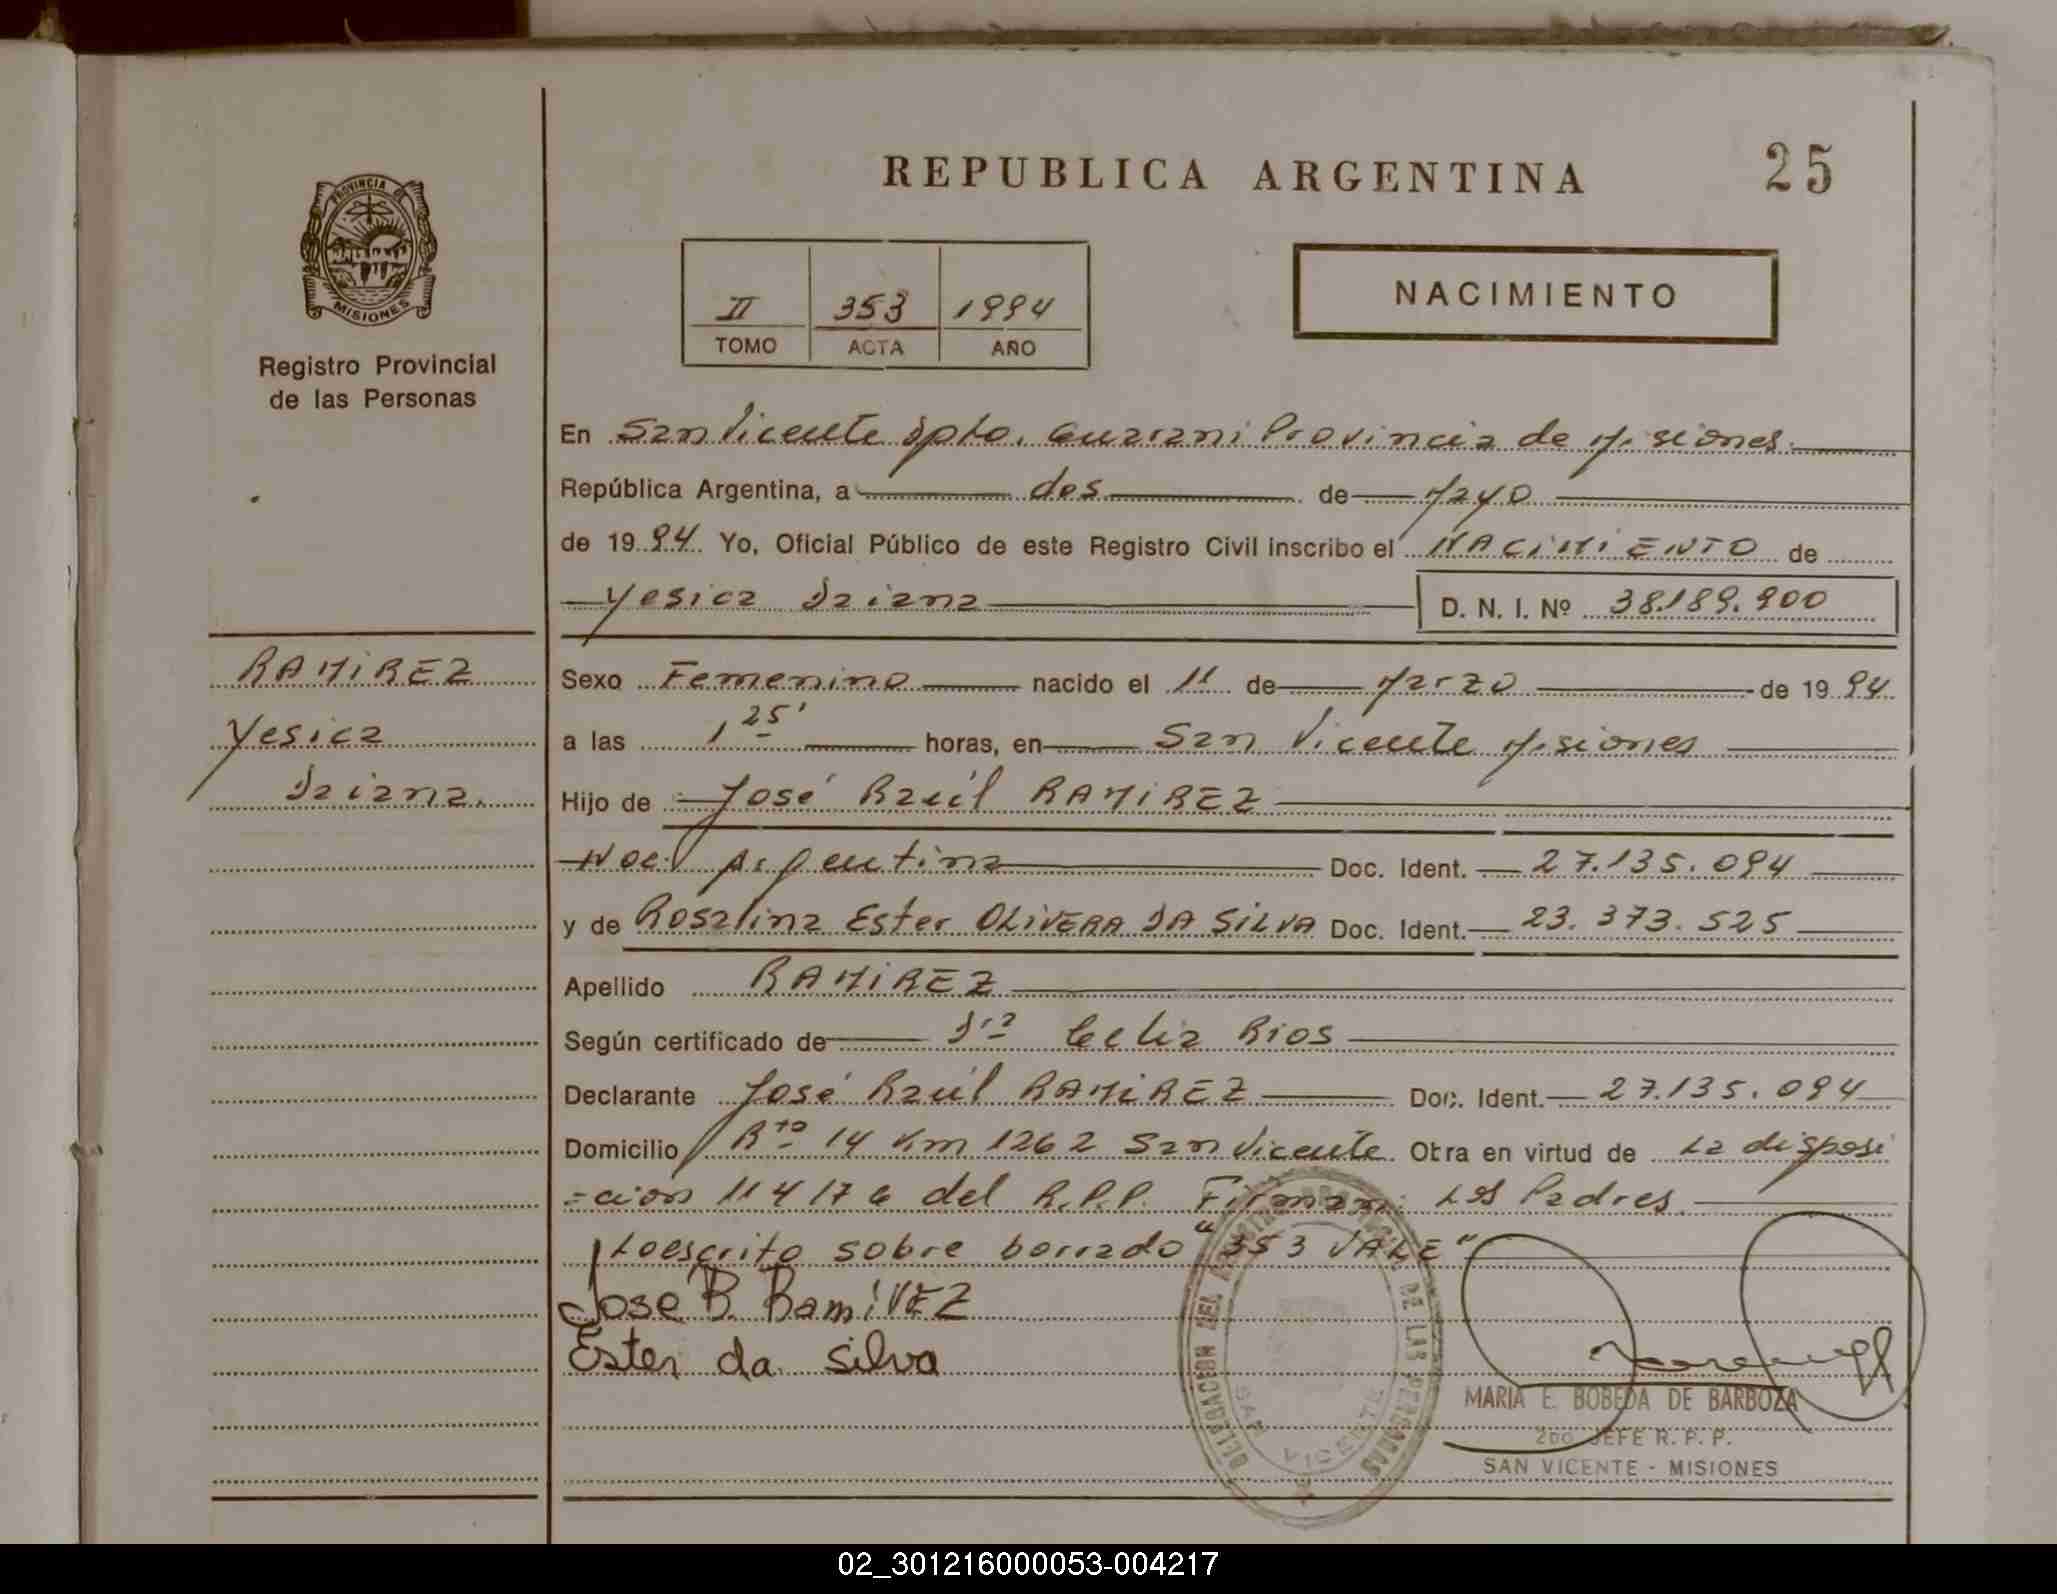 REPUBLICA ARGENTINA
25
PROVINCIA DE
MISIONES
Registro Provincial
de las Personas
II 353 1994
TOMO ACTA AÑO
NACIMIENTO
En San Vicente Dpto. Guarani Provincia de Misiones.
República Argentina, a dos de Mayo
de 1994. Yo, Oficial Público de este Registro Civil inscribo el NACIMIENTO de
Yesica Daiana D. N. I. Nº 38.189.900
RAMIREZ
Yesica
Daiana.
Sexo Femenino nacido el 11 de Marzo de 1994.
a las 1 25' horas, en San Vicente Misiones
Hijo de José Raúl RAMIREZ
Nac. Argentina Doc. Ident. 27.135.094
y de Rosalina Ester OLIVERA DA SILVA Doc. Ident. 23.373.525
Apellido RAMIREZ
Según certificado de Dra Celia Rios
Declarante José Raúl RAMIREZ Doc. Ident. 27.135.094
Domicilio Rta 14 Km 1262 San Vicente. Otra en virtud de La disposi
=cion 114176 del R.P.P. Firman: Los Padres.
Loescrito sobre borrado "353 VALE"
Jose R. RamiREZ
Ester da silva
DELEGACION DEL REGISTRO PROVINCIAL DE LAS PERSONAS
SAN VICENTE
MARIA E. BOBEDA DE BARBOZA
2DO JEFE R. P. P.
SAN VICENTE - MISIONES
02_301216000053-004217